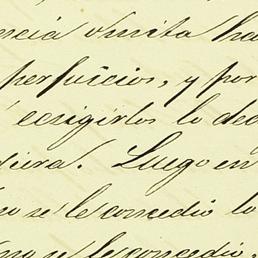 ncia omita ha
perjuicios, y por
exigirlos lo dec
diera. Luego en
no se le concedió lo
no se le concedio